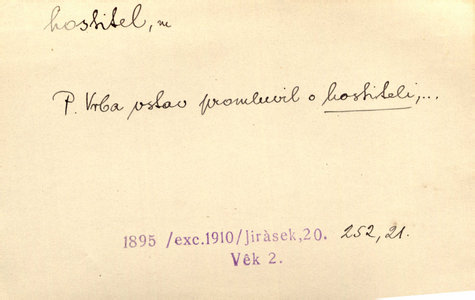 hostitel, m
P. Vrba vstav promluvil o hostiteli,...
1895 /exc.1910/Jiràsek,20. 252, 21.
Vêk 2.